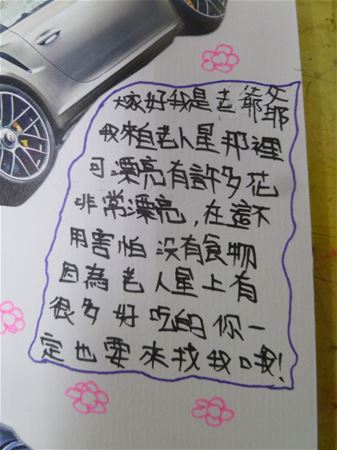 大家好我是老爺爺
我來自老人星那裡
可漂亮有許多花
非常漂亮,在這不
用害怕沒有食物
因為老人星上有
很多好吃的你一
定也要來找我哦!